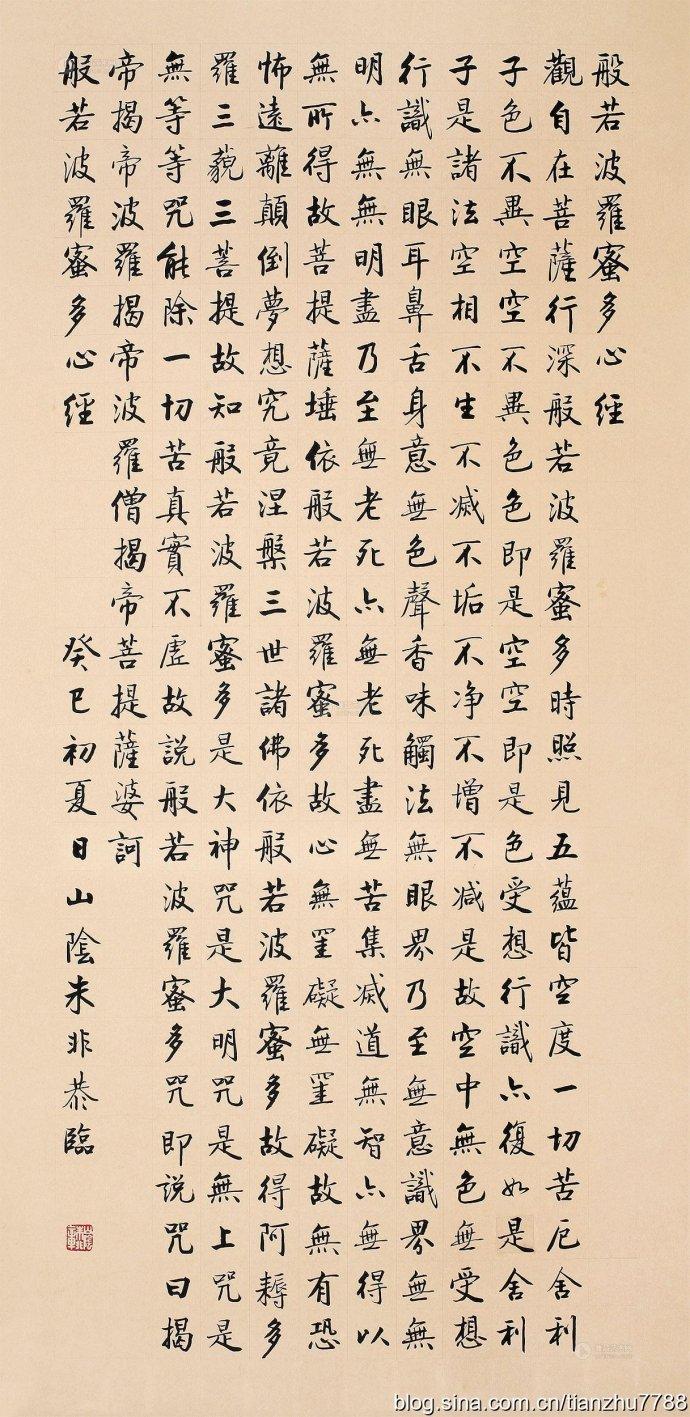 般若波羅蜜多心經
觀自在菩薩行深般若波羅蜜多時照見五蘊皆空度一切苦厄舍利
子色不異空空不異色色即是空空即是色受想行識亦復如是舍利
子是諸法空相不生不滅不垢不净不增不减是故空中無色無受想
行識無眼耳鼻舌身意無色聲香味觸法無眼界乃至無意識界無無
明亦無無明盡乃至無老死亦無老死盡無苦集滅道無智亦無得以
無所得故菩提薩埵依般若波羅蜜多故心無罣礙無罣礙故無有恐
怖遠離顛倒夢想究竟涅槃三世諸佛依般若波羅蜜多故得阿耨多
羅三藐三菩提故知般若波羅蜜多是大神咒是大明咒是無上咒是
無等等咒能除一切苦真實不虛故說般若波羅蜜多咒即說咒曰揭
帝揭帝波羅揭帝波羅僧揭帝菩提薩婆訶
般若波羅蜜多心經 癸巳初夏日山陰朱非恭臨
blog.sina.com.cn/tianzhu7788